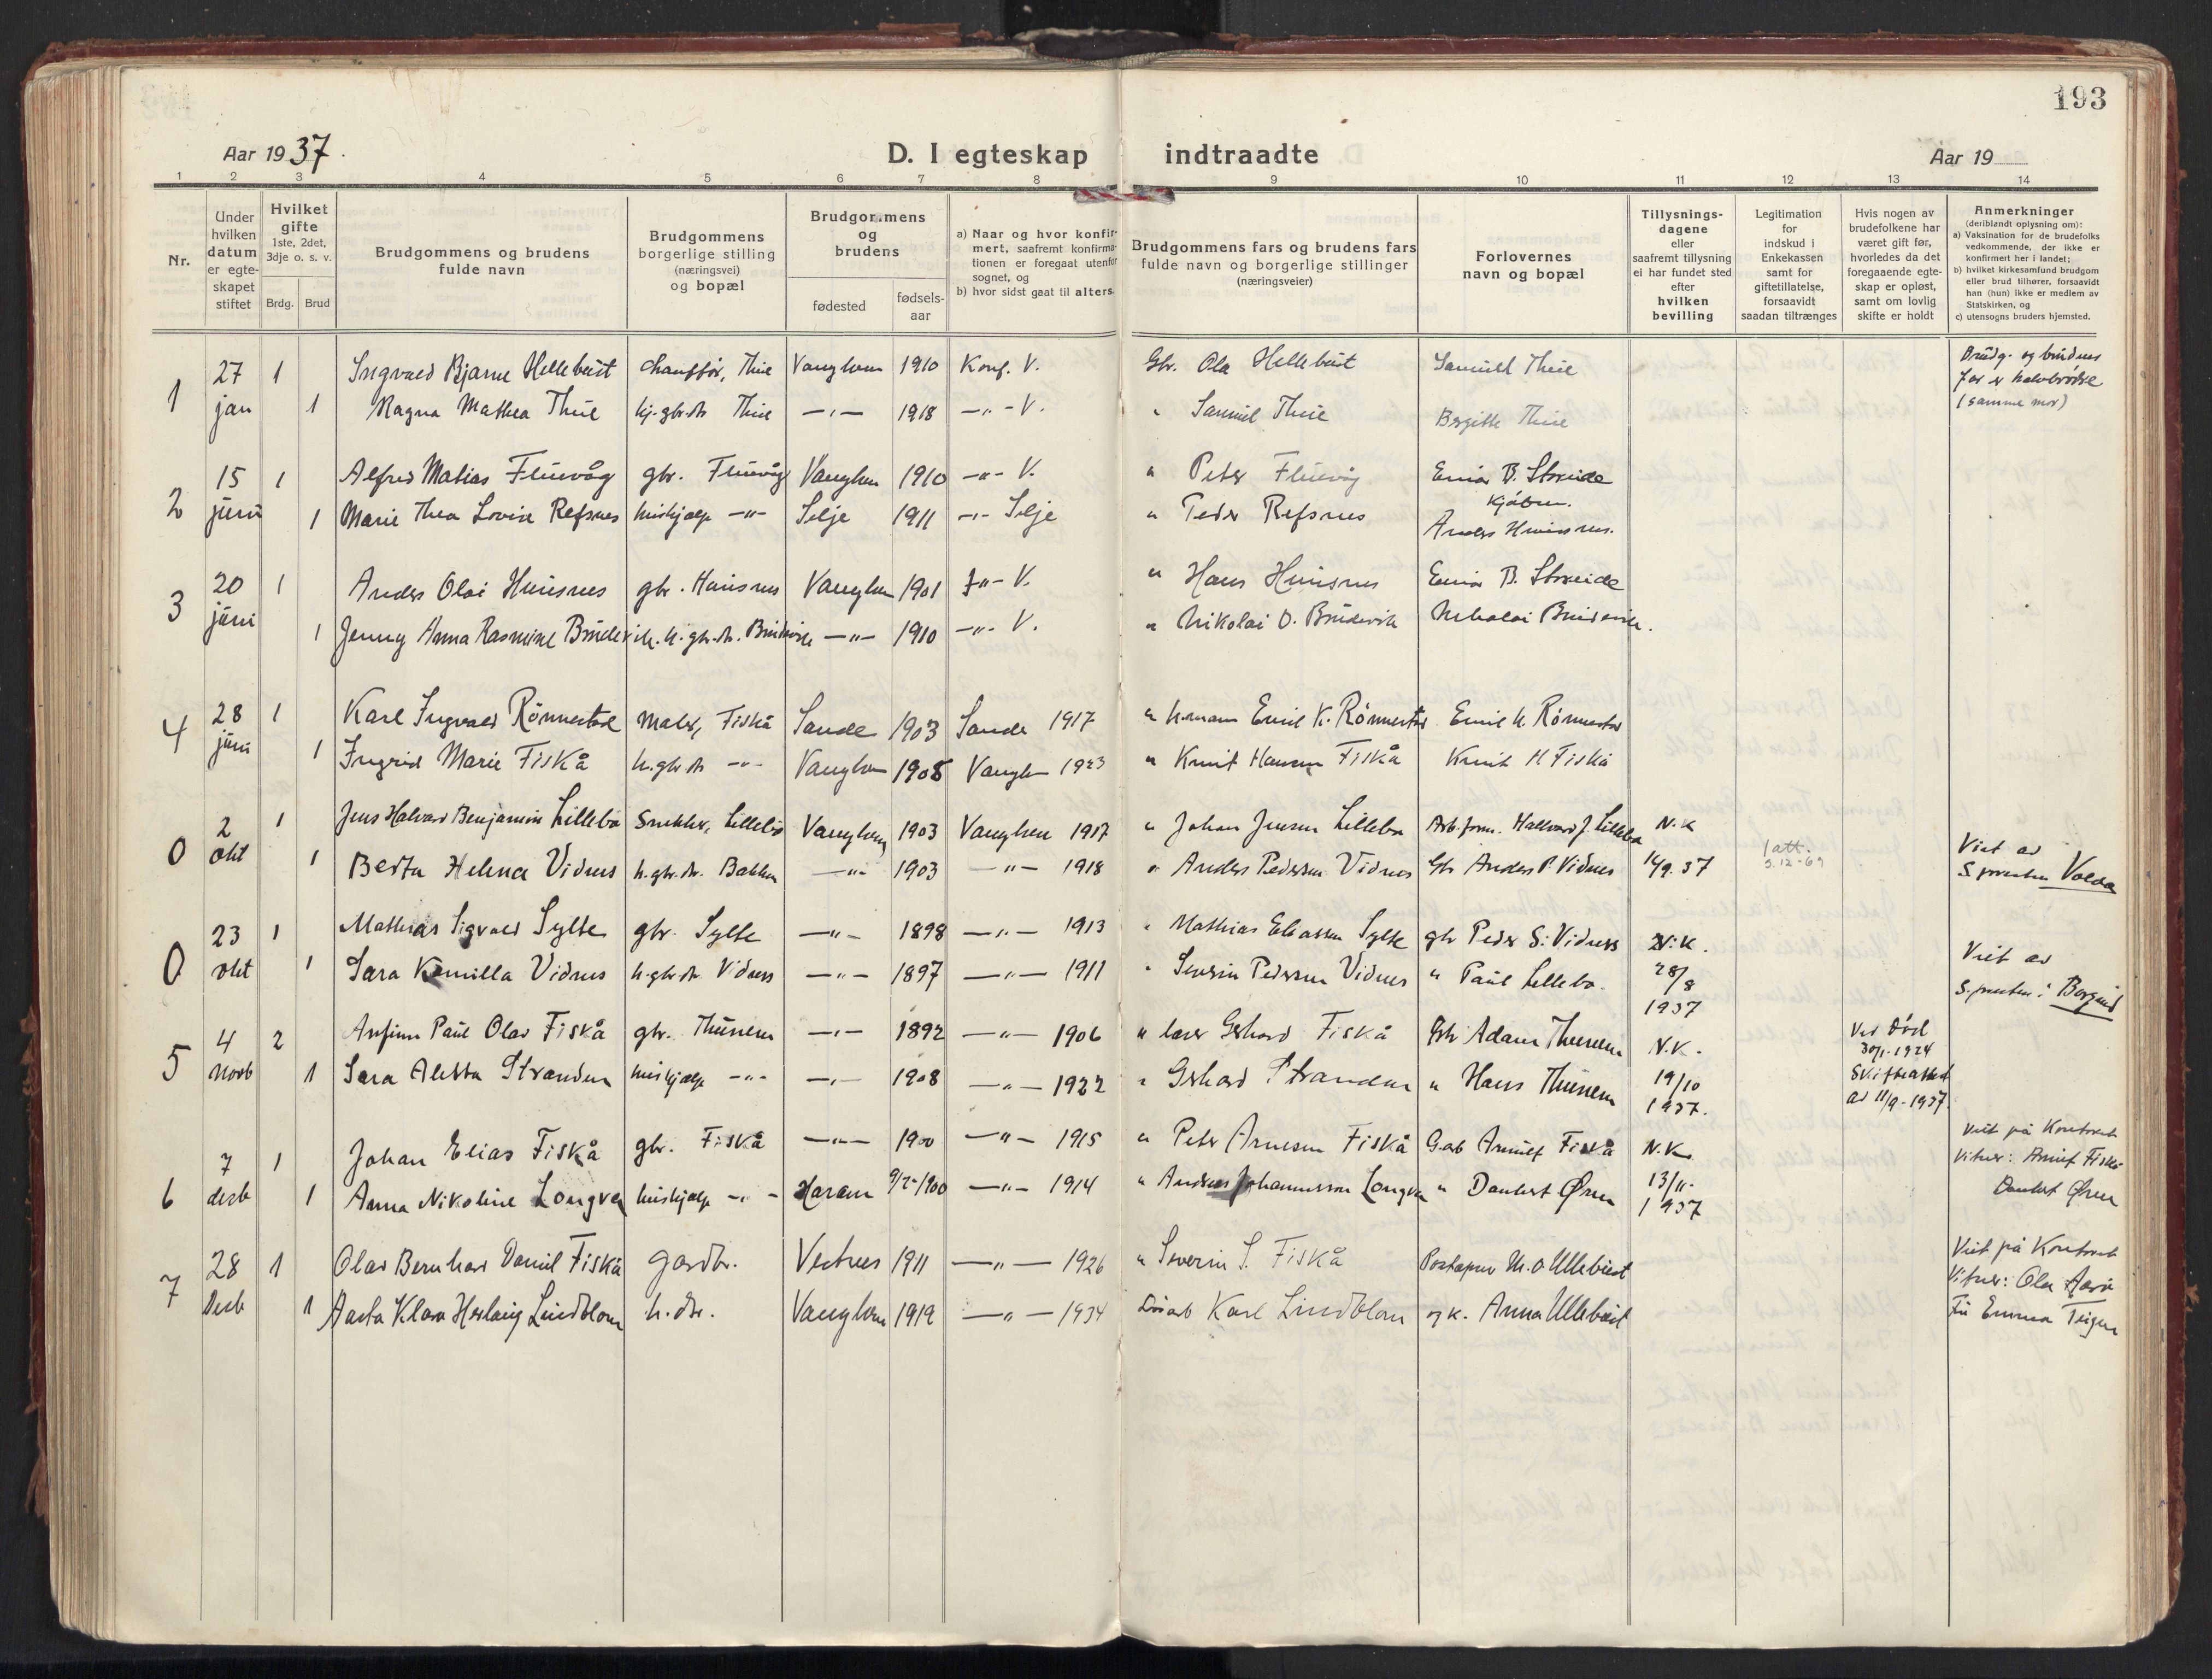 193
Aar 1937.
D. I egteskap indtraadte
Aar 19
1 2 3 4 5 6 7 8 9 10 11 12 13 14
Nr.
Under hvilken datum er egteskapet stiftet
Hvilket gifte 1ste, 2det, 3dje o. s. v.
Brdg. Brud
Brudgommens og brudens fulde navn
Brudgommens borgerlige stilling (næringsvei) og bopæl
Brudgommens og brudens
fødested
fødselsaar
a) Naar og hvor konfirmert, saafremt konfirmationen er foregaat utenfor sognet, og
b) hvor sidst gaat til alters.
Brudgommens fars og brudens fars fulde navn og borgerlige stillinger (næringsveier)
Forlovernes navn og bopæl
Tillysningsdagene eller saafremt tillysning ei har fundet sted efter hvilken bevilling
Legitimation for indskud i Enkekassen samt for giftetillatelse, forsaavidt saadan tiltrænges
Hvis nogen av brudefolkene har været gift før, hvorledes da det foregaaende egteskap er opløst, samt om lovlig skifte er holdt
Anmerkninger (deriblandt oplysning om):
a) Vaksination for de brudefolks vedkommende, der ikke er konfirmert her i landet;
b) hvilket kirkesamfund brudgom eller brud tilhører, forsaavidt han (hun) ikke er medlem av Statskirken, og
c) utensogns bruders hjemsted.
1 27 jan 1 Ingvald Bjarne Hellebust Chauffør, Thue Vanylven 1910 Konf. V. Gbr. Ola Hellebust Samuel Thue Brudg. og brudens far er halvbrødre
1 Magna Mathea Thue hj. gbr.dt Thue —"— 1918 —"— V. " Samuel Thue Bergitte Thue (samme mor)
2 15 juni 1 Alfred Matias Fluevåg gbr. Fluevåg Vanylven 1910 —"— V. " Peter Fluevåg Einar B. Storeide Kjøbm.
1 Marie Thea Lovise Refsnes hushjælp —"— Selje 1911 —"— Selje " Peder Refsnes Anders Huusnes.
3 20 juni 1 Anders Olai Huusnes gbr. Huusnes Vanylven 1901 —"— V. " Hans Huusnes Einar B. Storeide
1 Jenny Anna Rasmine Brudevik h. gbr.dt. Brudevik —"— 1910 —"— V. " Nikolai O. Brudevik Nikolai Brudevik.
4 28 juni 1 Karl Ingvald Rönnestad Maler, Fiskå Sande 1903 Sande 1917 " Emil K. Rönnestad Emil K. Rönnestad
1 Ingrid Marie Fiskå h. gbr dt —"— Vanylven 1908 Vanylv 1923 " Knut Hansen Fiskå Knut H Fiskå
0 2 okt 1 Jens Halvard Benjamin Lillebø Snekker, Lillebø Vanylven 1903 Vanylven 1917 " Johan Jensen Lillebø Arb.form. Hallvard J. Lillebø N.K
1 Berta Helena Vidnes h. gbr. dt. Bakken —"— 1903 —"— 1918 " Anders Pedersen Vidnes Gbr Anders P. Vidnes 14/9. 37 1 att. 3.12-69 Viet av S.presten Volda
0 23 okt 1 Mathias Sigvald Sylte gbr. Sylte —"— 1898 —"— 1913 " Mathias Eliassen Sylte gbr Peder S. Vidnes N.K.
1 Sara Kamilla Vidnes h. gbr. dt Vidnes —"— 1897 —"— 1911 " Severin Pedersen Vidnes " Paul Lillebø. 28/8 1937 Viet av S.presten i Borgund
5 4 novb 2 Anfinn Paul Olav Fiskå gbr. Thunem —"— 1892 —"— 1906 " lærer Gerhard Fiskå Gbr Adam Thunem N.K. Ved død 30/1-1924
1 Sara Aletta Stranden hushjælp —"— —"— 1908 —"— 1922 " Gerhard Stranden " Hans Thunem 19/10 1937. Skifteattest av 11/9-1937.
6 7 desb 1 Johan Elias Fiskå gbr. Fiskå —"— 1900 —"— 1915 " Peter Arnesen Fiskå Garb Arnulf Fiskå N.K. Viet på Kontoret Vitner: Arnulf Fiskå
1 Anna Nikoline Longva hushjælp —"— Haram 9/2-1900 —"— 1914 " Andreas Johannessen Longva " Daubert Øren 13/11- 1937 Daubert Øren
7 28 Desb 1 Olav Bernhard Daniel Fiskå Gardbr. Vestnes 1911 —"— 1926 " Severin S. Fiskå Poståpner M. O. Ullebust Viet på Kontoret Vitner: Ola Aarø
1 Aasta Klara Herlaug Lindblom h. dtr. Vanylven 1919 —"— 1934 Karl Lindblom og k. Anna Ullebust Frü Emma Teigen